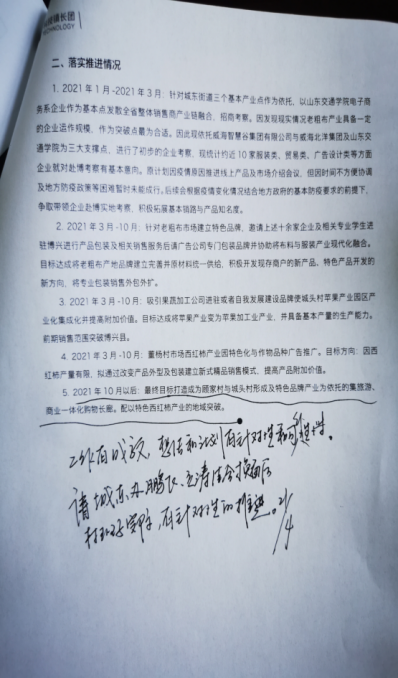 镇长团
TECHNOLOGY
二、落实推进情况
1. 2021年1月-2021年3月：针对城东街道三个基本产业点作为依托，以山东交通学院电子商
务系企业作为基本点发散全省整体销售商产业链融合、招商考察。因发现现实情况老粗布产业具备一定
的企业运作规模，作为突破点最为合适。因此现依托威海智慧谷集团有限公司与威海北洋集团及山东交
通学院为三大支撑点，进行了初步的企业考察，现统计约近10家服装类、贸易类、广告设计类等方面
企业就对赴博考察有基本意向。原计划因疫情原因推进线上产品及市场介绍会议，但因时间不方便协调
及地方防疫政策等困难暂时未能成行。后续会根据疫情变化情况结合地方政府的基本防疫要求的前提下，
争取带领企业赴博实地考察，积极拓展基本销路与产品知名度。
2. 2021年3月-10月：针对老粗布市场建立特色品牌，邀请上述十余家企业及相关专业学生进
驻博兴进行产品包装及相关销售服务后请广告公司专门包装品牌并协助将布料与服装产业现代化融合。
目标达成将老粗布产地品牌建立完善并原材料统一供给，积极开发现存商户的新产品、特色产品开发的
新方向，将专业包装销售外包外扩。
3. 2021年3月-10月：吸引果蔬加工公司进驻或者自我发展建设品牌使城头村苹果产业园区产
业化集成化并提高附加价值。目标达成将苹果产业变为苹果加工业产业，并具备基本产量的生产能力。
前期销售范围突破博兴县。
4. 2021年3月-10月：董杨村市场西红柿产业园特色化与作物品种广告推广。目标方向：因西
红柿产量有限，拟通过改变产品外型及包装建立新式精品销售模式，提高产品附加价值。
5. 2021年10月以后：最终目标打造成为顾家村与城头村形成及特色品牌产业为依托的集旅游、
商业一体化购物长廊。配以特色西红柿产业的地域突破。
工作有成效，想法和计划有针对性和可操作性。
请城东办鹏飞、
有针对性的推进。21/4